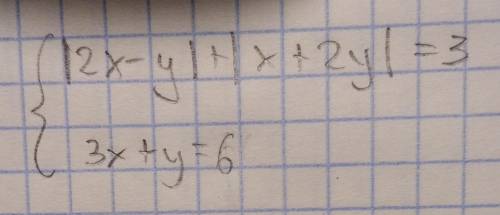 |2x-y|+|x+2y|=3
3x+y=6